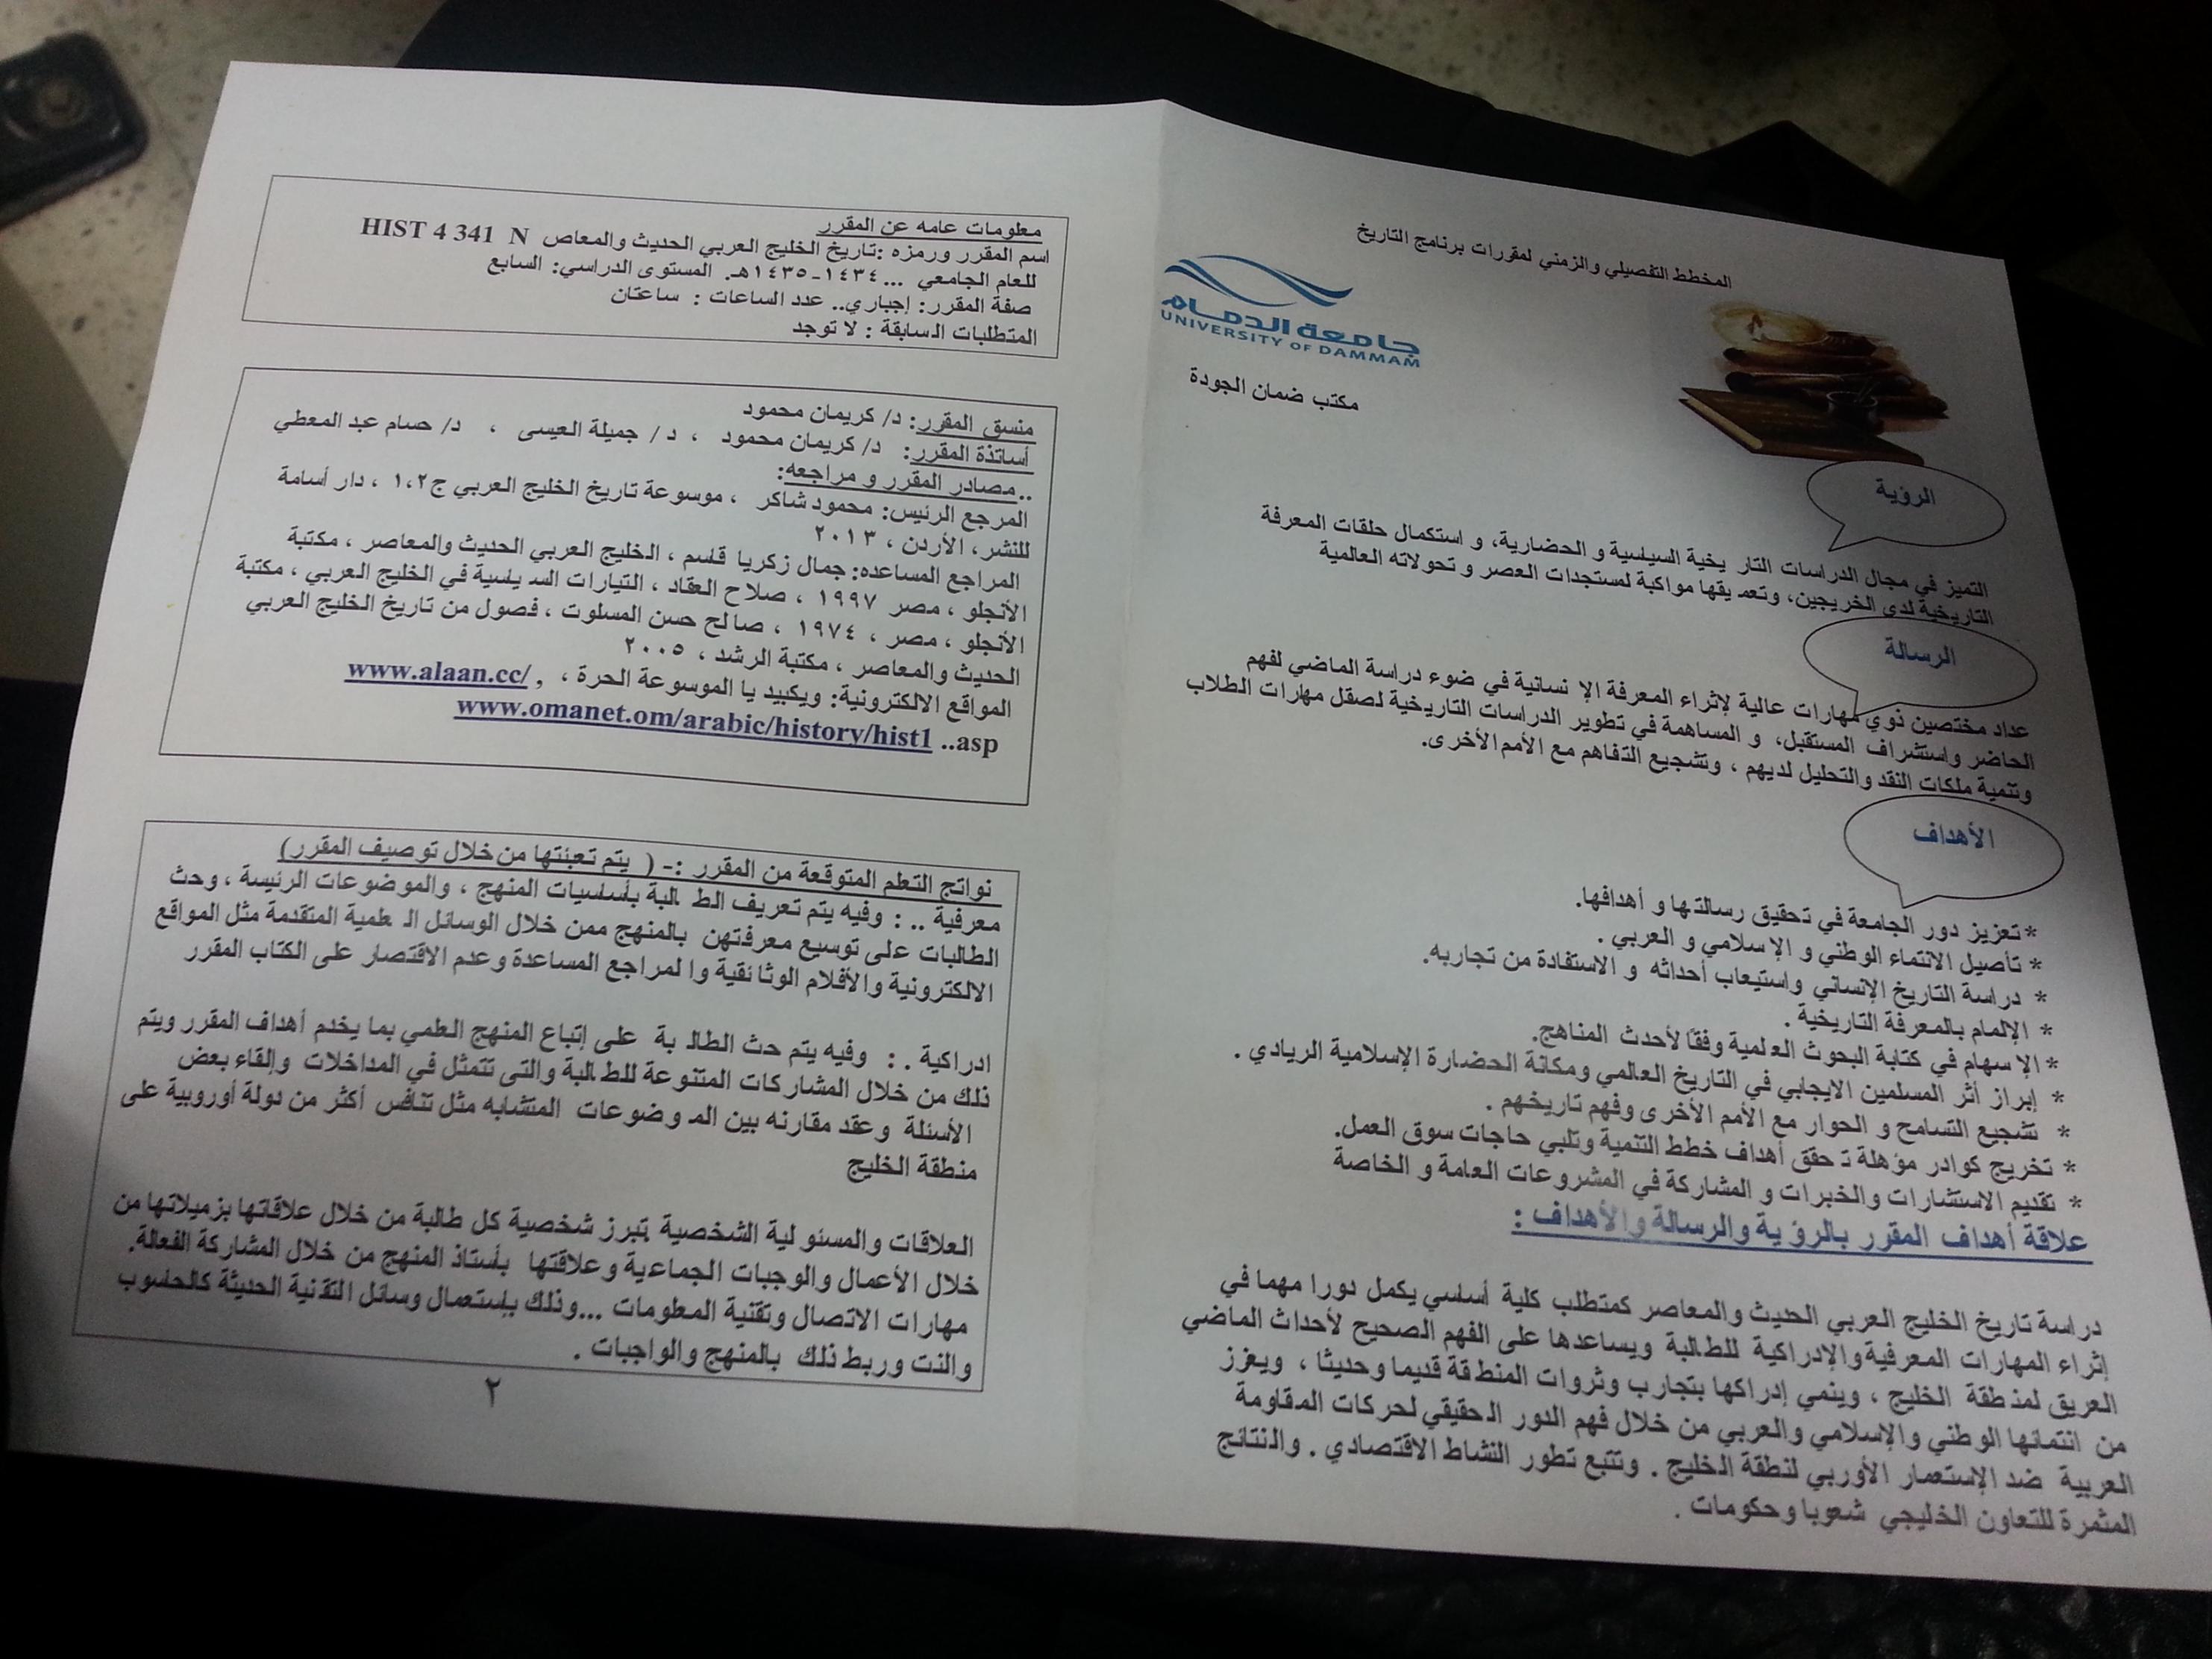 المخطط التفصيلي والزمني لمقررات برنامج التاريخ
جامعة الدمام
UNIVERSITY OF DAMMAM
مكتب ضمان الجودة
الرؤية
التميز في مجال الدراسات التاريخية السياسية و الحضارية، و استكمال حلقات المعرفة
التاريخية لدى الخريجين، وتعميقها مواكبة لمستجدات العصر و تحولاته العالمية
الرسالة
عداد مختصين ذوي مهارات عالية لإثراء المعرفة الإنسانية في ضوء دراسة الماضي لفهم
الحاضر واستشراف المستقبل، و المساهمة في تطوير الدراسات التاريخية لصقل مهارات الطلاب
وتنمية ملكات النقد والتحليل لديهم ، وتشجيع التفاهم مع الأمم الأخرى.
الأهداف
* تعزيز دور الجامعة في تحقيق رسالتها و أهدافها.
* تأصيل الانتماء الوطني و الإسلامي و العربي .
* دراسة التاريخ الإنساني واستيعاب أحداثه و الاستفادة من تجاربه.
* الإلمام بالمعرفة التاريخية .
* الإسهام في كتابة البحوث العلمية وفقًا لأحدث المناهج.
* إبراز أثر المسلمين الايجابي في التاريخ العالمي ومكانة الحضارة الإسلامية الريادي .
* تشجيع التسامح و الحوار مع الأمم الأخرى وفهم تاريخهم .
* تخريج كوادر مؤهلة تحقق أهداف خطط التنمية وتلبي حاجات سوق العمل.
* تقديم الاستشارات والخبرات و المشاركة في المشروعات العامة و الخاصة
علاقة أهداف المقرر بالرؤية والرسالة والأهداف :
دراسة تاريخ الخليج العربي الحديث والمعاصر كمتطلب كلية أساسي يكمل دورا مهما في
إثراء المهارات المعرفية والإدراكية للطالبة ويساعدها على الفهم الصحيح لأحداث الماضي
العريق لمنطقة الخليج ، وينمي إدراكها بتجارب وثروات المنطقة قديما وحديثا ، ويعزز
من انتمائها الوطني والإسلامي والعربي من خلال فهم الدور الحقيقي لحركات المقاومة
العربية ضد الإستعمار الأوربي لنطقة الخليج . وتتبع تطور النشاط الاقتصادي . والنتائج
المثمرة للتعاون الخليجي شعوبا وحكومات .
معلومات عامه عن المقرر
اسم المقرر ورمزه :تاريخ الخليج العربي الحديث والمعاص HIST 4 341 N
للعام الجامعي ... ١٤٣٤-١٤٣٥هـ. المستوى الدراسي: السابع
صفة المقرر: إجباري.. عدد الساعات : ساعتان
المتطلبات السابقة : لا توجد
منسق المقرر: د/ كريمان محمود
أساتذة المقرر: د/ كريمان محمود ، د / جميلة العيسى ، د/ حسام عبد المعطي
..مصادر المقرر و مراجعه:
المرجع الرئيس: محمود شاكر ، موسوعة تاريخ الخليج العربي ج١،٢ ، دار أسامة
للنشر، الأردن ، ٢٠١٣
المراجع المساعده: جمال زكريا قاسم ، الخليج العربي الحديث والمعاصر ، مكتبة
الأنجلو ، مصر ١٩٩٧ ، صلاح العقاد ، التيارات السياسية في الخليج العربي ، مكتبة
الأنجلو ، مصر ، ١٩٧٤ ، صالح حسن المسلوت ، فصول من تاريخ الخليج العربي
الحديث والمعاصر ، مكتبة الرشد ، ٢٠٠٥
المواقع الالكترونية: ويكبيديا الموسوعة الحرة ، , www.alaan.cc/
www.omanet.om/arabic/history/hist1 ..asp
نواتج التعلم المتوقعة من المقرر :- ( يتم تعبئتها من خلال توصيف المقرر)
معرفية .. : وفيه يتم تعريف الطالبة بأساسيات المنهج ، والموضوعات الرئيسة ، وحث
الطالبات على توسيع معرفتهن بالمنهج ممن خلال الوسائل العلمية المتقدمة مثل المواقع
الالكترونية والأفلام الوثائقية والمراجع المساعدة وعدم الاقتصار على الكتاب المقرر
ادراكية . : وفيه يتم حث الطالبة على إتباع المنهج العلمي بما يخدم أهداف المقرر ويتم
ذلك من خلال المشاركات المتنوعة للطالبة والتى تتمثل في المداخلات وإلقاء بعض
الأسئلة وعقد مقارنه بين الموضوعات المتشابه مثل تنافس أكثر من دولة أوروبية على
منطقة الخليج
العلاقات والمسئولية الشخصية تبرز شخصية كل طالبة من خلال علاقاتها بزميلاتها من
خلال الأعمال والوجبات الجماعية وعلاقتها بأستاذ المنهج من خلال المشاركة الفعالة.
مهارات الاتصال وتقنية المعلومات ...وذلك بإستعمال وسائل التقنية الحديثة كالحاسوب
والنت وربط ذلك بالمنهج والواجبات .
٢